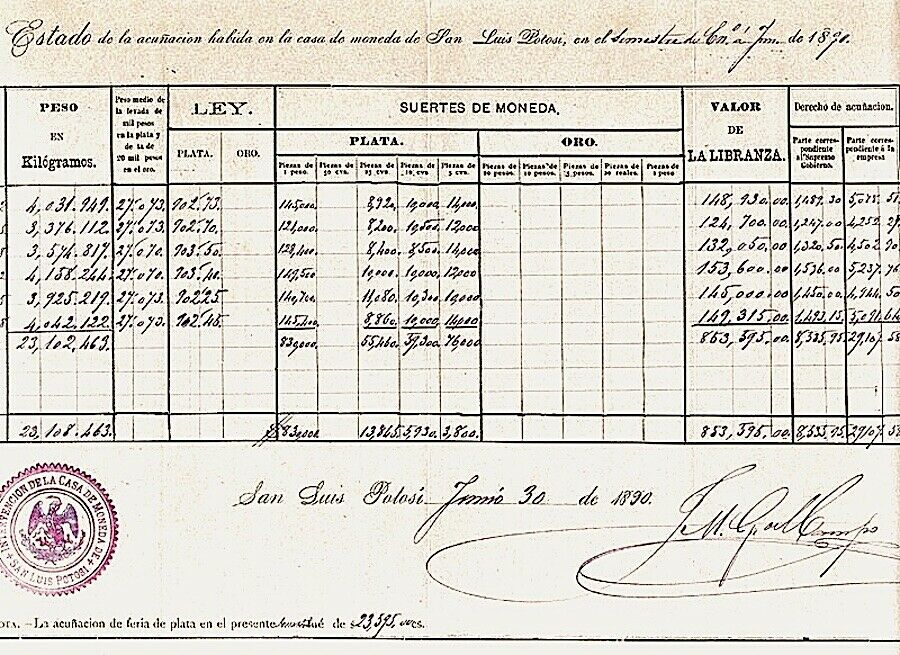 Estado de la acuñacion habida en la casa de moneda de San Luis Potosí, en el semestre de En.º á Jun. de 1890.
PESO EN Kilógramos. Peso medio de la levada de mil pesos en la plata y de la de 20 mil pesos en el oro. LEY. SUERTES DE MONEDA. VALOR DE LA LIBRANZA. Derecho de acuñacion.
PLATA. ORO. PLATA. ORO. Parte correspondiente al Supremo Gobierno. Parte correspondiente á la empresa
Piezas de 1 peso. Piezas de 50 cvs. Piezas de 25 cvs. Piezas de 10 cvs. Piezas de 5 cvs. Piezas de 20 pesos. Piezas de 10 pesos. Piezas de 5 pesos. Piezas de Piezas de 1 peso
4,031.949. 27.073. 902.73. 145,000. 8,920. 10,000. 14,000. 148,930.00. 1,489.30 5,0
3,376.112. 27.073. 902.70. 121,000. 8,200. 10,500. 12,000 124,700.00. 1,247.00 4,2
3,574.817. 27.070. 903.50. 128,400. 8,400. 8,500. 14,000. 132,050.00. 1,320.50. 4,502.
4,158.244. 27.070. 903.40. 149,500. 10,000. 10,000. 12,000 153,600.00. 1,536.00 5,237.
3,925.219. 27.073. 902.25 140,700. 11,080. 10,300. 10,000. 145,000.00 1,450.00 4,944.
4,042.122. 27.073. 902.45. 145,400. 8,860. 10,000. 14,000 149,315.00. 1,493.15.
23,102.463. 830,000. 55,460. 59,300. 76,000. 853,595.00. 8,535.95. 29,107.
23,108.463. $ 830,000. 13,865. 5,930. 3,800. 853,595.00. 8,535.95. 29,107.
San Luis Potosí Junio 30 de 1890.
INTERVENCION DE LA CASA DE MONEDA DE SAN LUIS POTOSI
OTA. —La acuñacion de feria de plata en el presente fué de $23,595.00 cs.